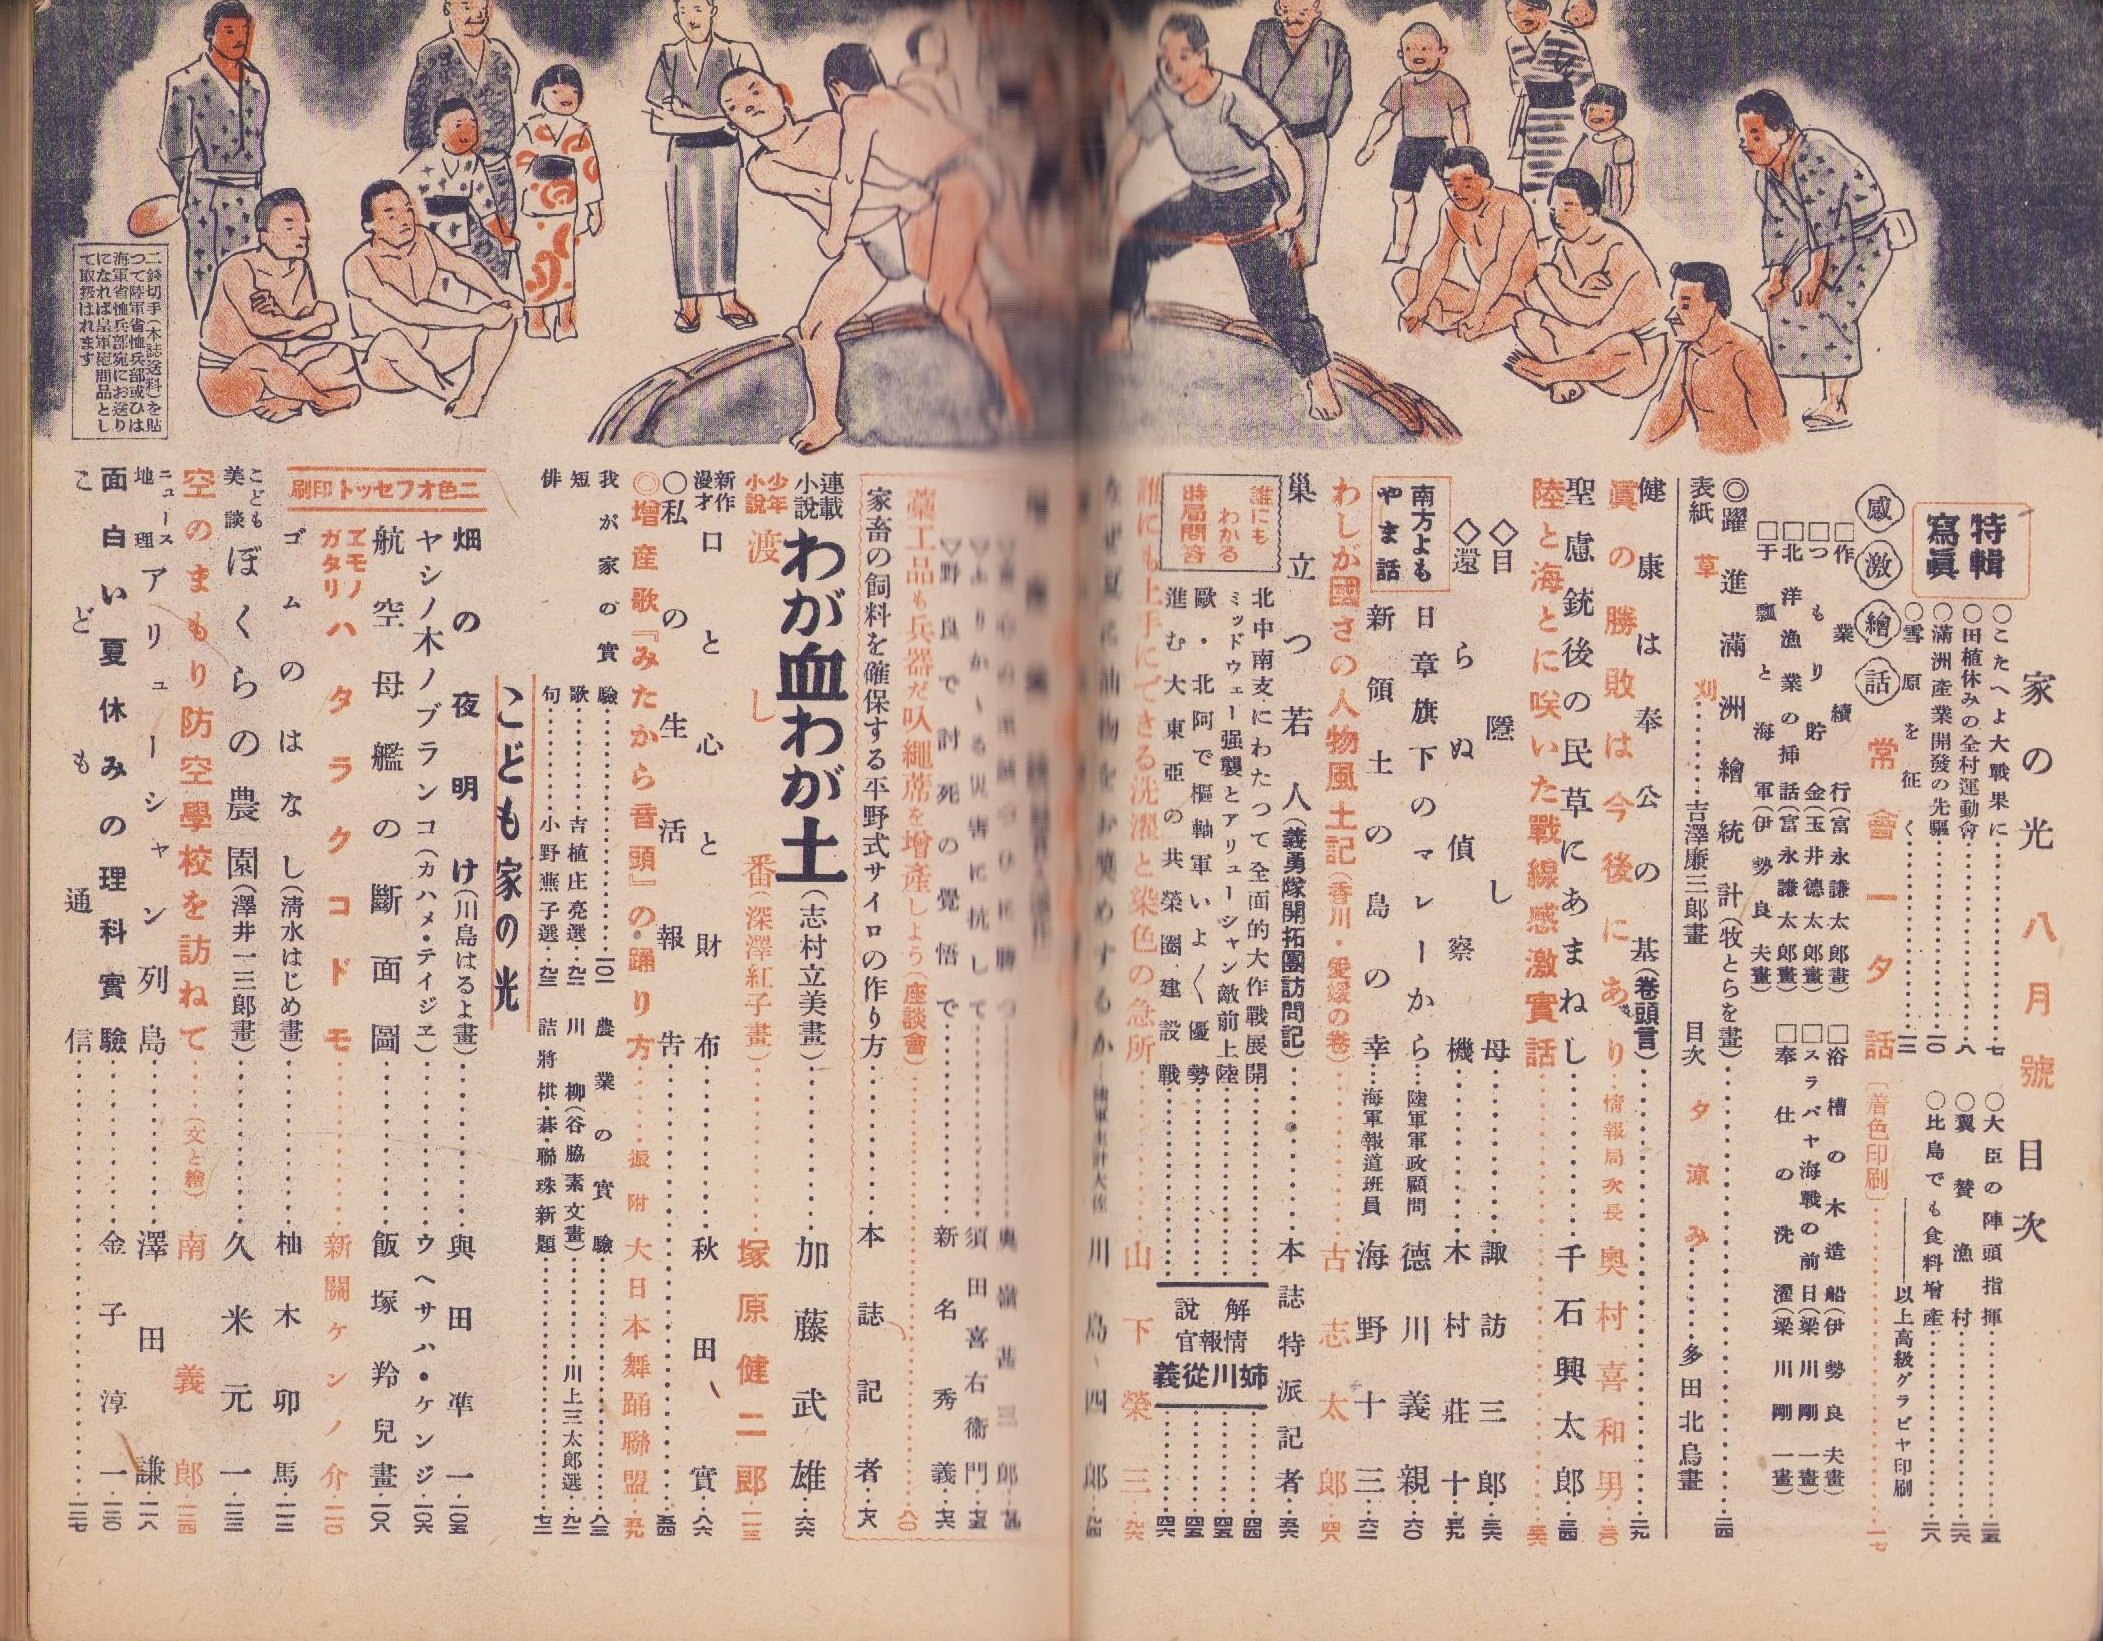 家の光 八月號 目次
特輯寫眞
○こたへよ大戰果に……七
○田植休みの全村運動會……八
○滿洲產業開發の先驅……一〇
○雪原を征く……一二
○大臣の陣頭指揮……二五
○翼賛漁村……二六
○比島でも食料增產……二八
以上高級グラビヤ印刷
感激繪話
常會一夕話〔着色印刷〕……一七
□作業績行(富永謙太郎畫)
□つもり貯金(玉井德太郎畫)
□北洋漁業の挿話(富永謙太郎畫)
□干瓢と海軍(伊勢良夫畫)
□浴槽の木造船(伊勢良夫畫)
□スラバヤ海戰の前日(梁川剛一畫)
□奉仕の洗濯(梁川剛一畫)
◎躍進滿洲繪統計(牧とらを畫)……三四
表紙 草刈……吉澤廉三郎畫
目次 夕涼み……多田北烏畫
健康は奉公の基(卷頭言)……二九
眞の勝敗は今後にあり…情報局次長 奧村喜和男…三〇
聖慮銃後の民草にあまねし……千石興太郎…三四
陸と海とに咲いた戰線感激實話……三六
◇目隱し……母 諏訪三郎…三六
◇還らぬ偵察機……木村莊十…三九
南方よもやま話
日章旗下のマレーから…陸軍軍政顧問 德川義親…六〇
新領土の島の幸…海軍報道班員 海野十三…六二
わしが國さの人物風土記(香川・愛媛の卷)……古志太郎…四八
巢立つ若人(義勇隊開拓團訪問記)……本誌特派記者…五六
誰にもわかる時局問答
北中南支にわたつて全面的大作戰展開……四四
ミッドウェー强襲とアリューシャン敵前上陸……四五
歐・北阿で樞軸軍いよ〱優勢……四五
進む大東亞の共榮圈建設戰……四六
解說 情報官 姉川從義
誰にも上手にできる洗濯と染色の急所……山下榮三…九六
なぜ夏に油物をお奬めするか…陸軍主計大佐 川島四郎
▽野良で討死の覺悟で……新名秀義…七六
須田喜右衞門…七五
藁工品も兵器だ叺繩蓆を增產しよう(座談會)……八〇
家畜の飼料を確保する平野式サイロの作り方……本誌記者…七八
連載小說 わが血わが土(志村立美畫)……加藤武雄…六六
少年小說 渡し番(深澤紅子畫)……塚原健二郎…一一三
新作漫才 口と心と財布……秋田實…八六
○私の生活報告……五四
◎增產歌『みたから音頭』の踊り方……振附 大日本舞踊聯盟…五九
我が家の實驗……一〇一
農業の實驗……八三
短歌……吉植庄亮選…九二
川柳(谷脇素文畫)……川上三太郎選…九二
俳句……小野蕪子選…九三
詰將棋・碁・聯珠新題……七二
こども家の光
畑の夜明け(川島はるよ畫)……與田凖一…一〇五
ヤシノ木ノブランコ(カハメ・テイジヱ)……ウヘサハ・ケンジ…一〇六
二色オフセット印刷
航空母艦の斷面圖……飯塚羚兒畫…一〇八
ヱモノガタリ ハタラクコドモ……新關ケンノ介…一一〇
ゴムのはなし(清水はじめ畫)……柚木卯馬…一一二
こども美談 ぼくらの農園(澤井一三郎畫)……久米元一…一二二
空のまもり防空學校を訪ねて…(文と繪) 南義郎…一二四
ニュース地理 アリューシャン列島……澤田謙…一一八
面白い夏休みの理科實驗……金子淳一…一二〇
こども通信……一二七
二錢切手(本誌送料)を貼
つて陸軍省恤兵部或ひは
海軍省恤兵部宛にお送り
になれば皇軍慰問品とし
て取扱はれます